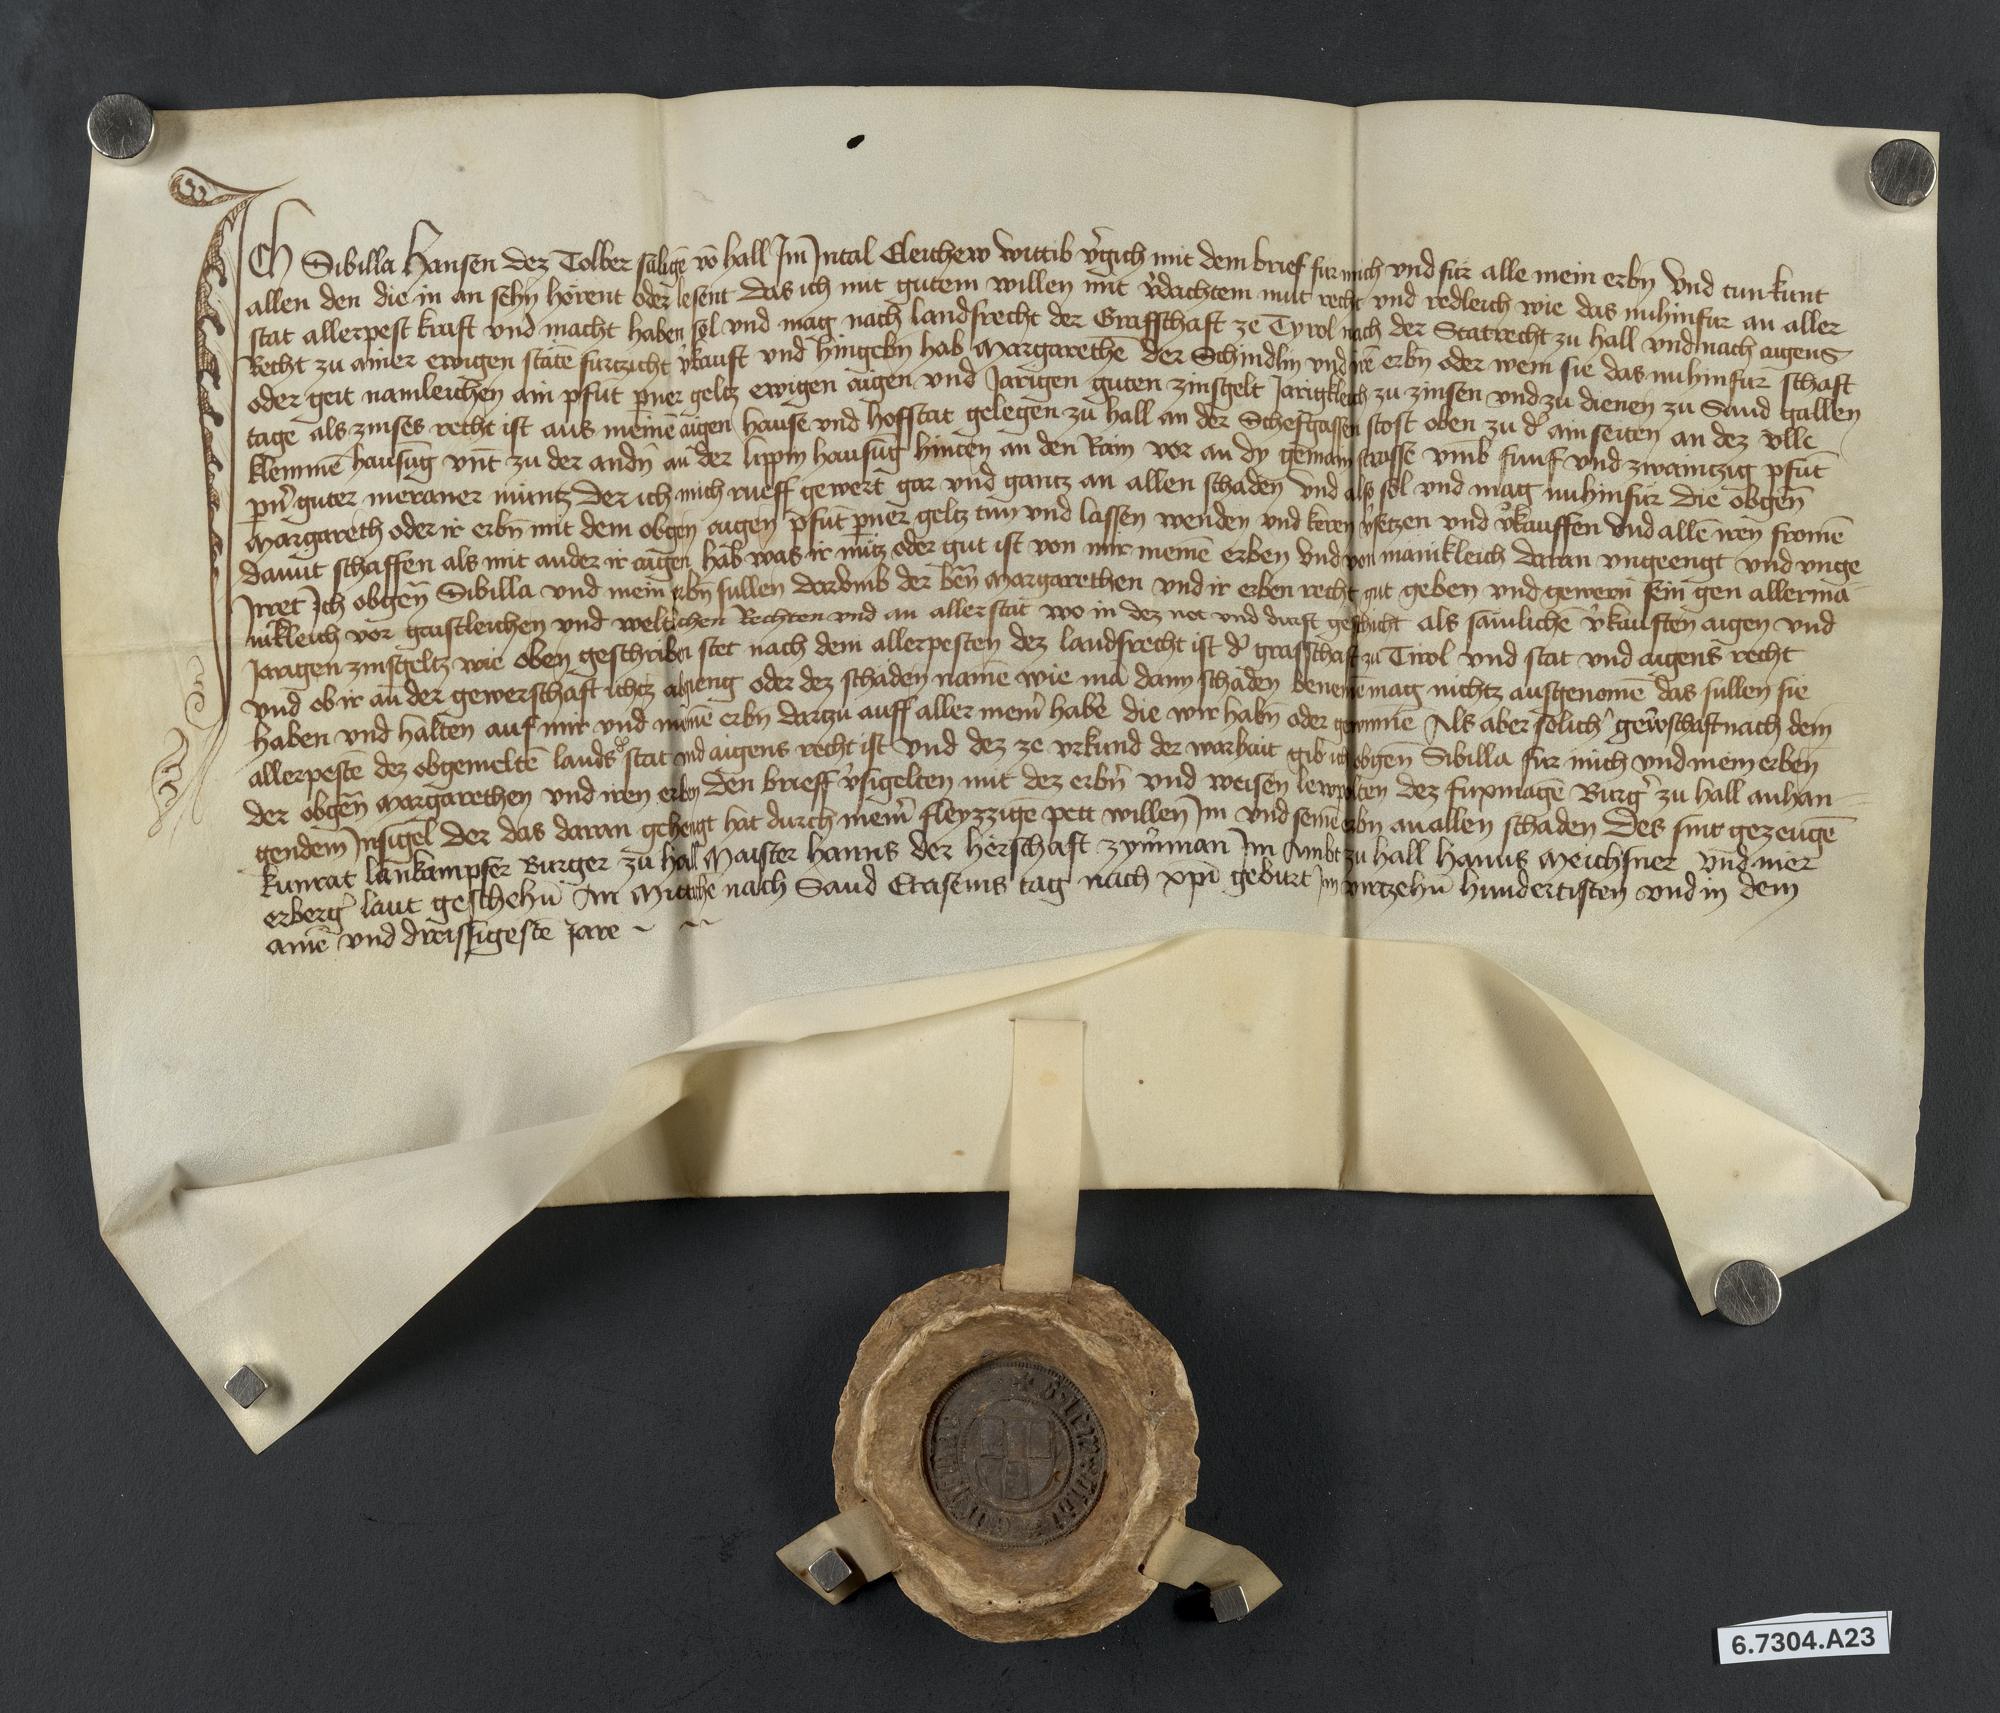 Ich Sibilla Hansen dez Tolber säligē vō hall Im Intal Eleichew wittib v̾gich mit dem brief für mich vnd für alle mein erbn̄ Vnd tun kunt
allen den die in an sehn̄ hörent oder lesent Das ich mit gutem willen mit v̾dachtem mut recht vnd redleich wie das nuhinfur an aller
stat allerpest kraft vnd macht haben sol vnd mag nach landsrecht der Grafschaft ze Tyrol nach der Statrecht zu hall vnd nach aigens
Recht zu ainer ewigen stätē furtzicht v̾kauft vnd hingebn̄ hab Margarethē der Schindlin vnd irē erbn̄ oder wem sie das nuhinfur schaft
oder geit namleichen ain pfūt perner geltz ewigen aigen vnd Järigen guten zinsgelt Järigkleich zu zinsen vnd zu dienen zu Sand gallen
tage als zinses recht ist aus meinē aigen hause vnd hofstat gelegen zu hall an der Schefgassen stost oben zu d̾ ain seiten an dez vlle
klemmē hausūg vnt zu der andn̄ an der lippin hausūg hinten an den Rain vor an dy gemain strasse vmb funf vnd zwaintzig pfūt
pn̄ guter meraner müntz Der ich mich rueff gewert gar vnd gantz an allen schaden Vnd also sol vnd mag nuhinfür die obgen̄
Margareth oder ir erbn̄ mit dem obgen̄ aigen pfūt perner geltz tun vnd lassen wenden vnd keren v̾setzen vnd v̾kauffen Vnd allē iren fromē
damit schaffen als mit ander ir aigen hab was ir nütz oder gut ist von mir meinē erben Vnd von mänikleich daran vngeengt vnd vnge
Irret Ich obgen̄ Sibilla vnd mein erbn̄ sullen darvmb der ben̄ Margarethen vnd ir erben recht gut geben vnd gewern sein gen allermä
nikleich vor gaistleichen vnd weltlichen Rechten vnd an aller stat wo in dez not vnd durft geschicht als sämlichē v̾kauften aigen vnd
Jarigen zinsgeltz wie oben geschriben stet nach dem allerpesten dez landsrecht ist d̾ grafschaft zu Tirol vnd stat vnd aigens recht
vnd ob ir an der gewerschaft ichtz abgieng oder dez schaden namē wie mā dann schaden benennē mag nichtz ausgenomē das sullen sie
haben vnd halten auf mir vnd meinē erbn̄ dartzu auff aller mein̾ habe die wir habn̄ oder gewinnē Als aber sölich̾ gew̾schaft nach dem
allerpestē dez obgemeltē lands stat vnd aigens recht ist vnd dez ze vrkund der warhait gib ich obgen̄ Sibilla für mich vnd mein erben
der obgen̄ Margarethen vnd iren erben Den brieff v̾sigelten mit dez erbn̄ vnd weisen lewpolten dez fuxmagē Burg̾ zu hall anhan-
gendem Insigel Der das daran gehengt hat durch mein̾ fleyzzige pett willen Im vnd seinē erbn̄ an allen schaden Des sint gezeugē
kunrat lankampfer Burger zu hall Maister hanns der herschaft zym̾man Im Ambt zu hall hanns Meichsner vnd mer
erberg̾ laut geschehn̄ An Mittichē nach Sand Erasems tag nach xpī geburt Im virzehn̄ hundertisten vnd in dem
ainē vnd dreissigestē Jare
6.7304.A23